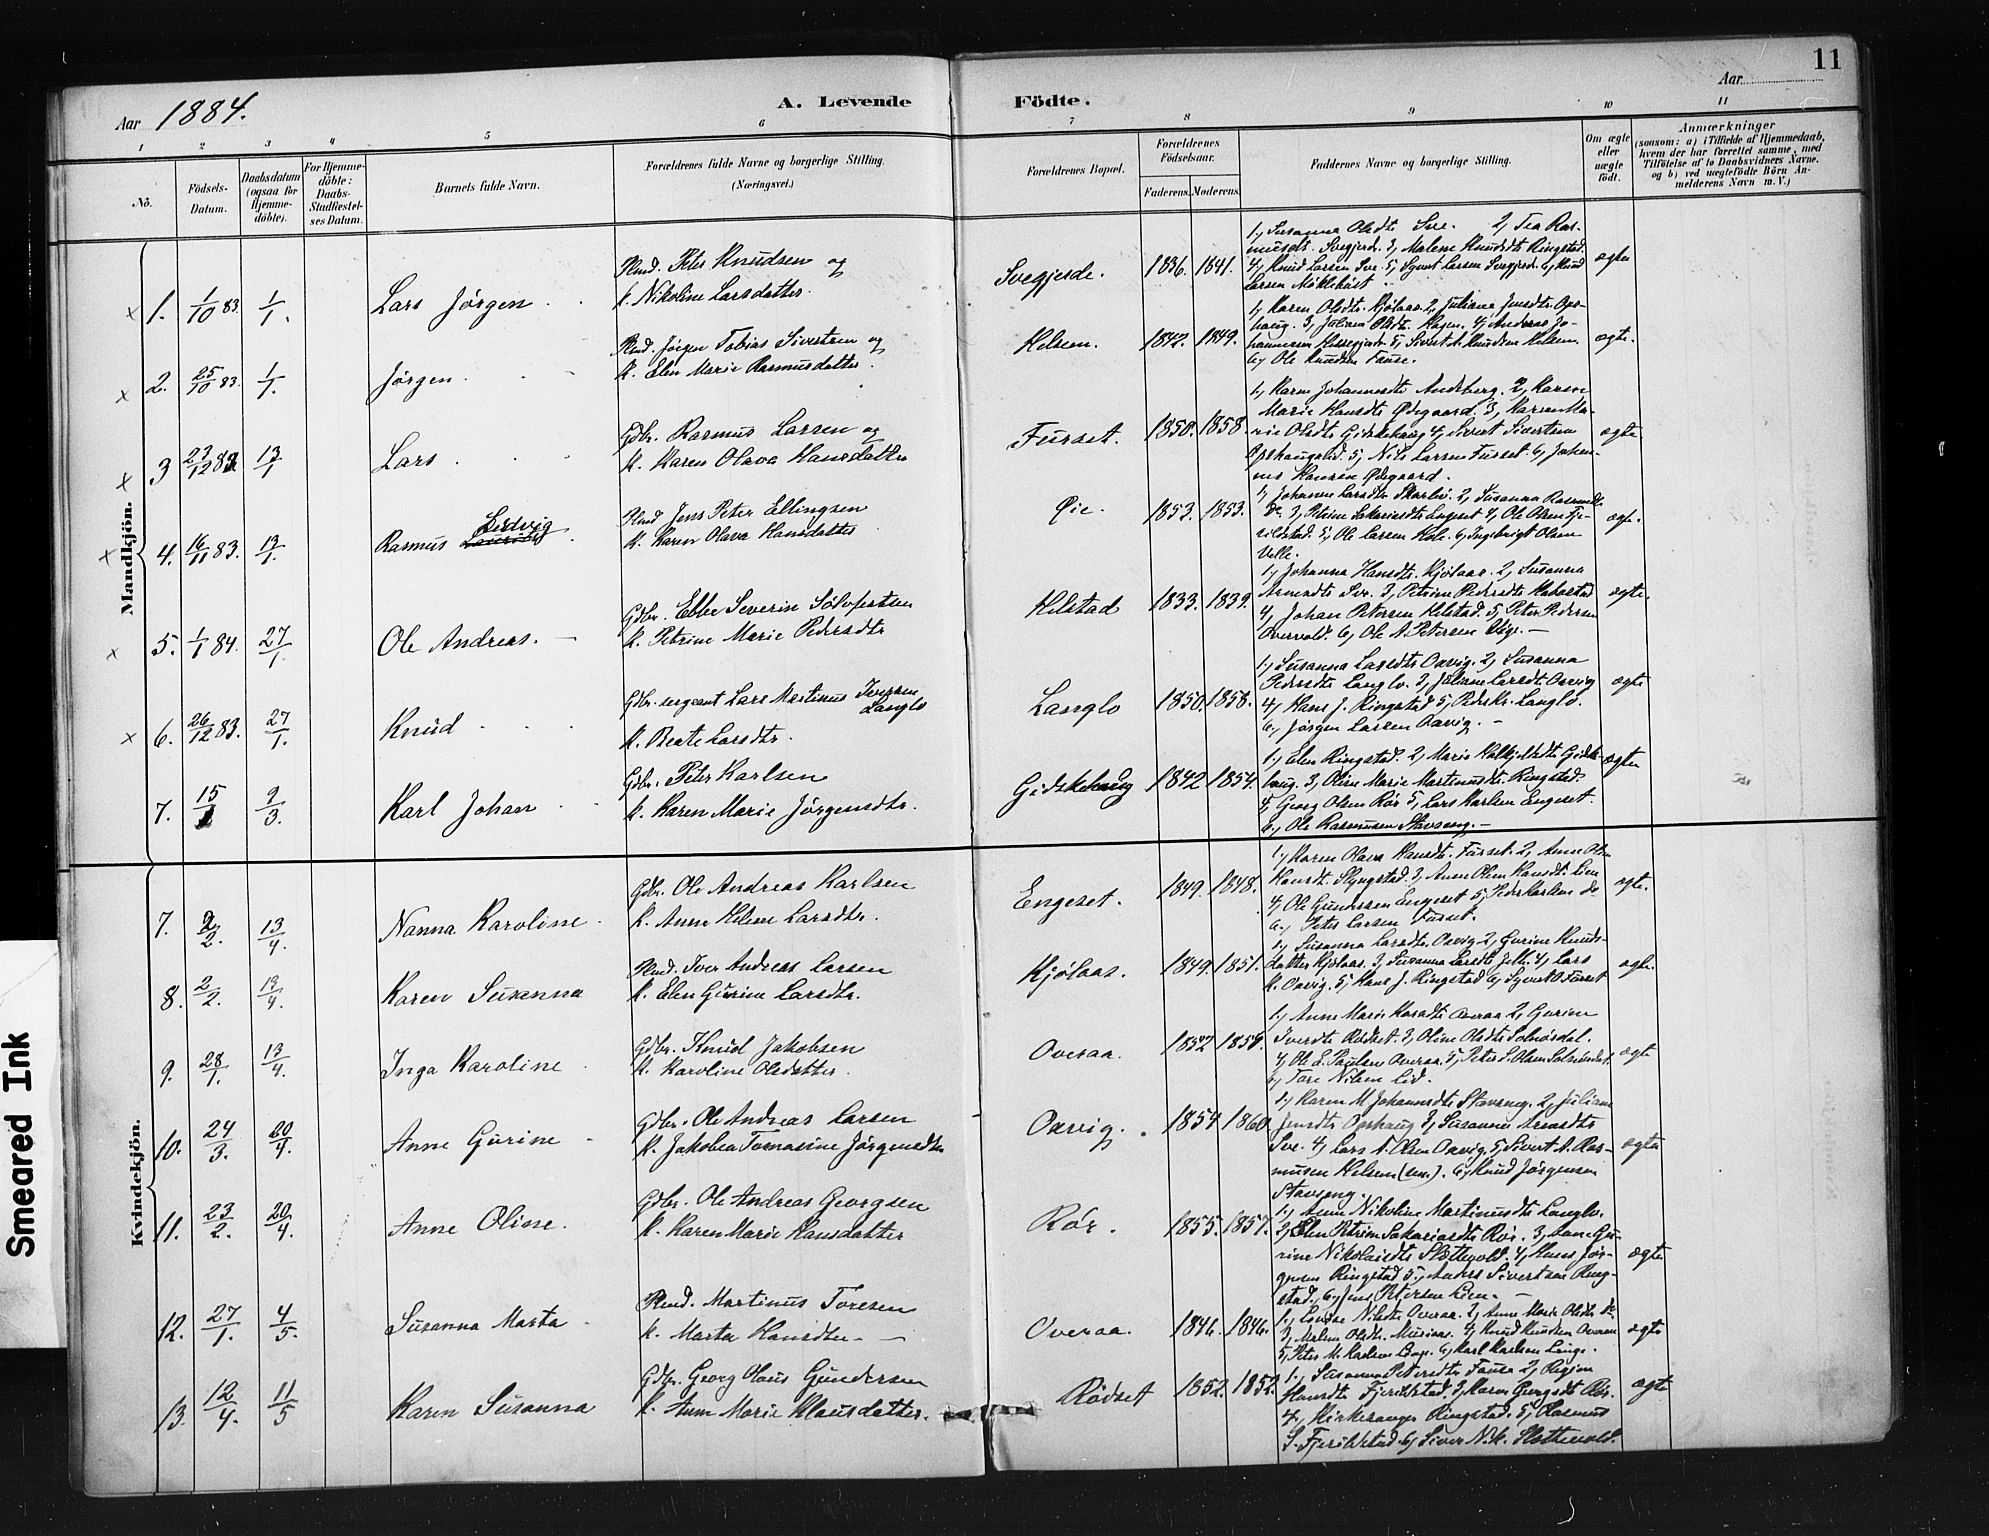 11
Aar 1884.
A. Levende Födte.
Aar
1 2 3 4 5 6 7 8 9 10 11
No.
Födsels-Datum.
Daabsdatum (ogsaa for Hjemme-döbte).
For Hjemme-döbte: Daabs-Stadfestel-ses Datum.
Barnets fulde Navn.
Forældrenes fulde Navne og borgerlige Stilling. (Næringsvei.)
Forældrenes Bopæl.
Forældrenes Födselsaar.
Faderens. Moderens.
Faddernes Navne og borgerlige Stilling.
Om ægte eller uægte födt.
Anmærkninger (saasom: a) i Tilfælde af Hjemmedaab, hvem der har forrettet samme, med Tilföielse af to Daabsvidners Navne, og b) ved uægtefödte Börn An-melderens Navn m. V.)
Mandkjön.
1. 1/10 83. 1/1. Lars Jørgen
Peter Knudsen og
k. Nikoline Larsdatter
Svegjerde. 1836. 1841.
1, Susanna Olsdtr Sve. 2, Tea Ras-
musdt. Svegjerd. 3, Malene Knudsdtr Ringstad.
4, Knud Larsen Sve. 5, Syvert Larsen Svegjerd. 6, Knud
Larsen Mykkebust
ægte
2. 25/10 83. 1/1. Jørgen.
Jørgen Tobias Sivertsen og
k. Elen Marie Rasmusdatter.
Helsem. 1842. 1849.
1, Karen Olsdtr. Kjølaas. 2, Juliane Jensdtr. Ops-
haug. 3, Juliane Olsdtr. Hagen. 4, Andreas Jo-
hannesen Hessegjerd. 5, Sivert A. Knudsen Helsem.
6, Ole Knudsen Fause.
ægte.
3 23/12 83 13/1 Lars
Gdbr. Rasmus Larsen og
k. Karen Olava Hansdatter
Furset. 1850. 1858.
1, Karen Johannesdtr Andeberg. 2, Karen
Marie Hansdtr Ødegaard. 3, Karen Ma-
rie Olsdtr Gidskehaug 4, Sivert Sivertsen
Opshaugstad. 5, Nils Larsen Furset. 6, Johan-
nes Hansen Ødegaard.
ægte
4. 16/11 83. 13/1. Rasmus Ludvig
Jens Peter Ellingsen
k. Karen Olava Hansdatter
Øie. 1853. 1853.
1, Johanne Larsdtr Skarbø. 2, Susanna Rasmusdtr
do. 3, Petrine Sakariasdtr Engeset 4, Ole Olsen Fje-
rildstad. 5, Ole Larsen Hole. 6, Ingebrigt Olsen
Velle.
ægte.
5. 1/1 84. 27/1. Ole Andreas.
Gdbr. Ebbe Severin Sølvfestsen
k. Petrine Marie Pedersdtr
Helstad 1833. 1839.
1, Johanna Hansdtr. Kjølaas. 2, Susanna
Arnesdtr Sve. 3, Petrine Pedersdtr Habostad
4, Johan Petersen Helstad. 5, Peter Pedersen
Overvold. 6, Ole A. Petersen Vige.
ægte.
6. 26/12 83. 27/1. Knud
Gdbr. sergeant Lars Martinus Iversen
Langlo
k. Beate Larsdtr.
Langlo 1850. 1858.
1, Susanna Larsdtr Aarvig. 2, Susanna
Pedersdtr Langlo. 3, Juliane Larsdtr Aarvig
4, Hans J. Ringstad 5, Peder Kr. Langlo.
6, Jørgen Larsen Aarvig.
ægte
7. 15/ 9/3. Karl Johan
Gdbr. Peter Karlsen
k. Karen Marie Jørgensdtr.
Gidskehaug 1842 1854.
1, Elen Ringstad. 2, Marie Gidske-
haug. 3, Oline Marie Martinusdtr. Ringstad.
4, Georg Olsen Rør 5, Lars Karlsen Engeset.
6, Ole Rasmusen Stavseng.
ægte
Kvindekjön.
7. 2/2. 13/4. Nanna Karoline
Gdbr. Ole Andreas Karlsen
k. Anne Helene Larsdtr.
Engeset. 1849. 1848.
1, Karen Olava Hansdtr. Furset. 2, Anne Oline
Hansdt. Slyngstad. 3, Anne Oline Hansdt. Lien
4, Ole Gunnersen Engeset 5, Peder Karlsen do
6, Peter Larsen Furset.
ægte.
8. 2/2. 13/4. Karen Susanna
Iver Andreas Larsen
k. Elen Gurine Larsdtr.
Kjølaas. 1849. 1851.
1, Susanna Larsdtr. Aarvig 2, Gurine Knuds-
datter Kjølaas. 3, Susanna Larsdtr 4, Lars
K. Aarvig. 5, Hans J. Ringstad 6, Syvert O Furset
ægte.
9. 28/1. 13/4. Inga Karoline
Gdbr. Knud Jakobsen
k. Karoline Olsdatter.
Overaa. 1852 1859.
1, Anne Marie Overaa 2, Gurine
Iversdtr Rødset. 3, Oline Olsdtr Solnørdal.
4, Ole E. Paulsen Overaa. 5, Peter S. Olsen Solnørdal.
6, Tore Nilsen Lid.
ægte
10. 24/3. 20/4. Anne Gurine
Gdbr. Ole Andreas Larsen
k. Jakobea Tomasine Jørgensdtr
Aarvig. 1854 1860
1, Karen M Johannesdtr Stavseng. 2, Juliane
Jensdtr Opshaug 3, Susanne Arnesdtr
Sve. 4, Lars A. Olsen Aarvig. 5, Sivert A. Ras-
musen Helsem. 6, Knud Jørgensen
Stavseng.
ægte
11. 23/2. 20/4. Anne Oline.
Gdbr. Ole Andreas Georgsen
k. Karen Marie Hansdatter
Rør. 1855. 1857.
1, Anne Nikoline Martinusdtr Langlo.
2, Elen Petrine Sakariasdtr Rør. 3, Lane Gu-
rine Nikolaisdtr Slottevold. 4, Hans Jør-
gensen Ringstad 5, Anders Sivertsen Ring-
stad. 6, Jens Petersen Lien.
ægte
12. 27/1. 4/5. Susanna Marta
Martinus Toresen
k. Marta Hansdtr
Overaa. 1846. 1846.
1, Lovise Nilsdtr Overaa. 2, Anne Marie Olsdtr do
3, Malene Olsdtr. 4, Knud Knudsen Overaa
5, Peter M. Karlsen 6, Karl Karlsen
ægte
13. 12/4. 11/5 Karen Susanna
Gdbr. Georg Claus Gundersen
k. Anne Marie Klausdatter.
Rødset 1852. 1852.
1, Susanna Petersdtr Fause 2, Regine
Hansdtr Fjerildstad. 3, Karen Georgsdtr Rør.
4, Ringstad. 5, Rasmus
S. Fjerildstad. 6, Siver Nik. Slottevold.
ægte
Smeared Ink